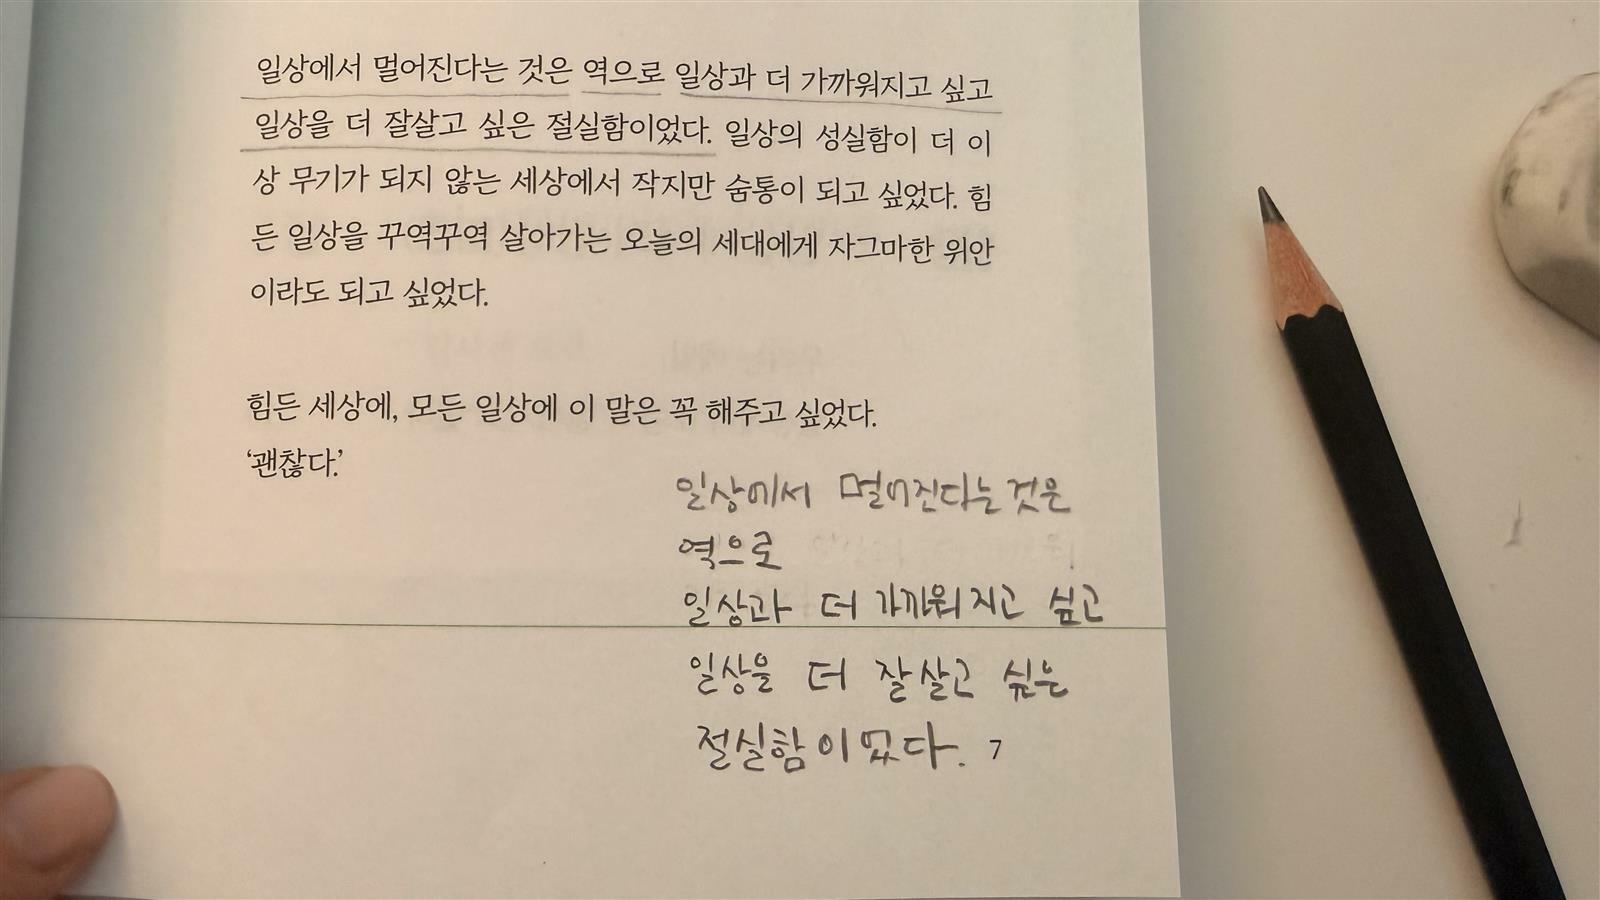 일상에서 멀어진다는 것은 역으로 일상과 더 가까워지고 싶고
일상을 더 잘살고 싶은 절실함이었다. 일상의 성실함이 더 이
상 무기가 되지 않는 세상에서 작지만 숨통이 되고 싶었다. 힘
든 일상을 꾸역꾸역 살아가는 오늘의 세대에게 자그마한 위안
이라도 되고 싶었다.
힘든 세상에, 모든 일상에 이 말은 꼭 해주고 싶었다.
‘괜찮다.’
일상에서 멀어진다는것은
역으로
일상과 더 가까워지고 싶고
일상을 더 잘살고 싶은
절실함이었다.
7